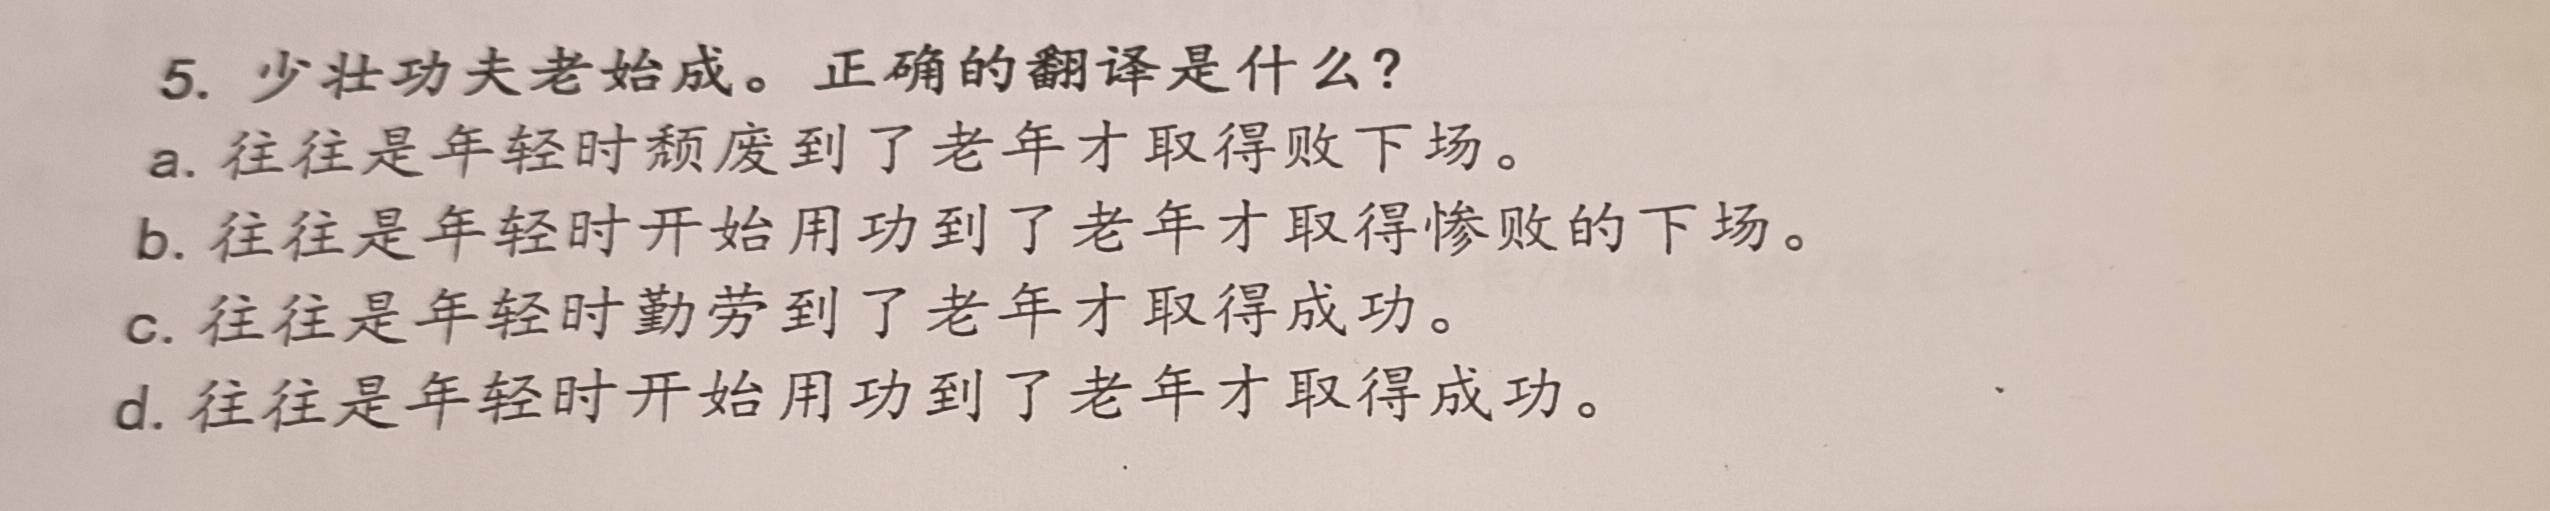 5. 少壮功夫老始成。正确的翻译是什么?
a. 往往是年轻时颓废到了老年才取得败下场。
b. 往往是年轻时开始用功到了老年才取得惨败的下场。
c. 往往是年轻时勤劳到了老年才取得成功。
d. 往往是年轻时开始用功到了老年才取得成功。